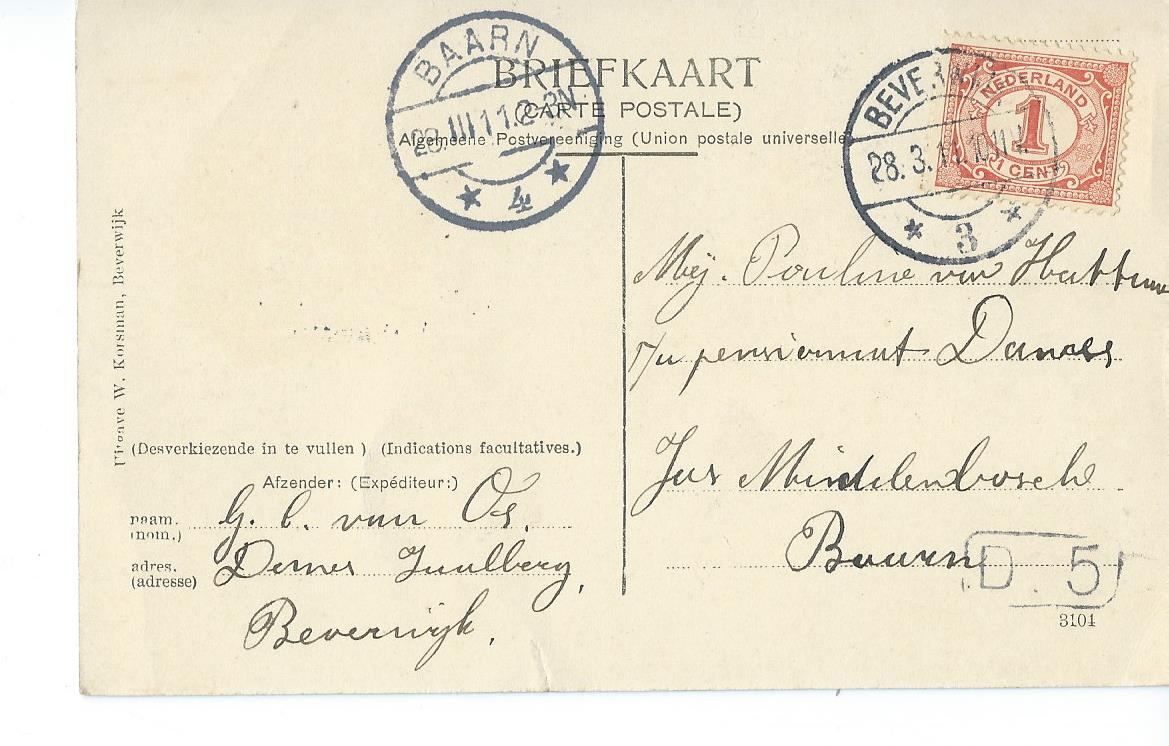 BAARN
28.III.11 12-3N
4
BRIEFKAART
(CARTE POSTALE)
Algemeene Postvereeniging (Union postale universelle)
BEVERWIJK
28.3.11 10-11V
3
NEDERLAND
1
1 CENT
Uitgave W. Korsman, Beverwijk
Mej. Pauline van Hattum
pensionnat
Jus
Baarn
D. 5
3104
(Desverkiezende in te vullen ) (Indications facultatives.)
Afzender: (Expéditeur:)
naam. G. C. van Os.
(nom.)
adres.
(adresse)
Beverwijk.